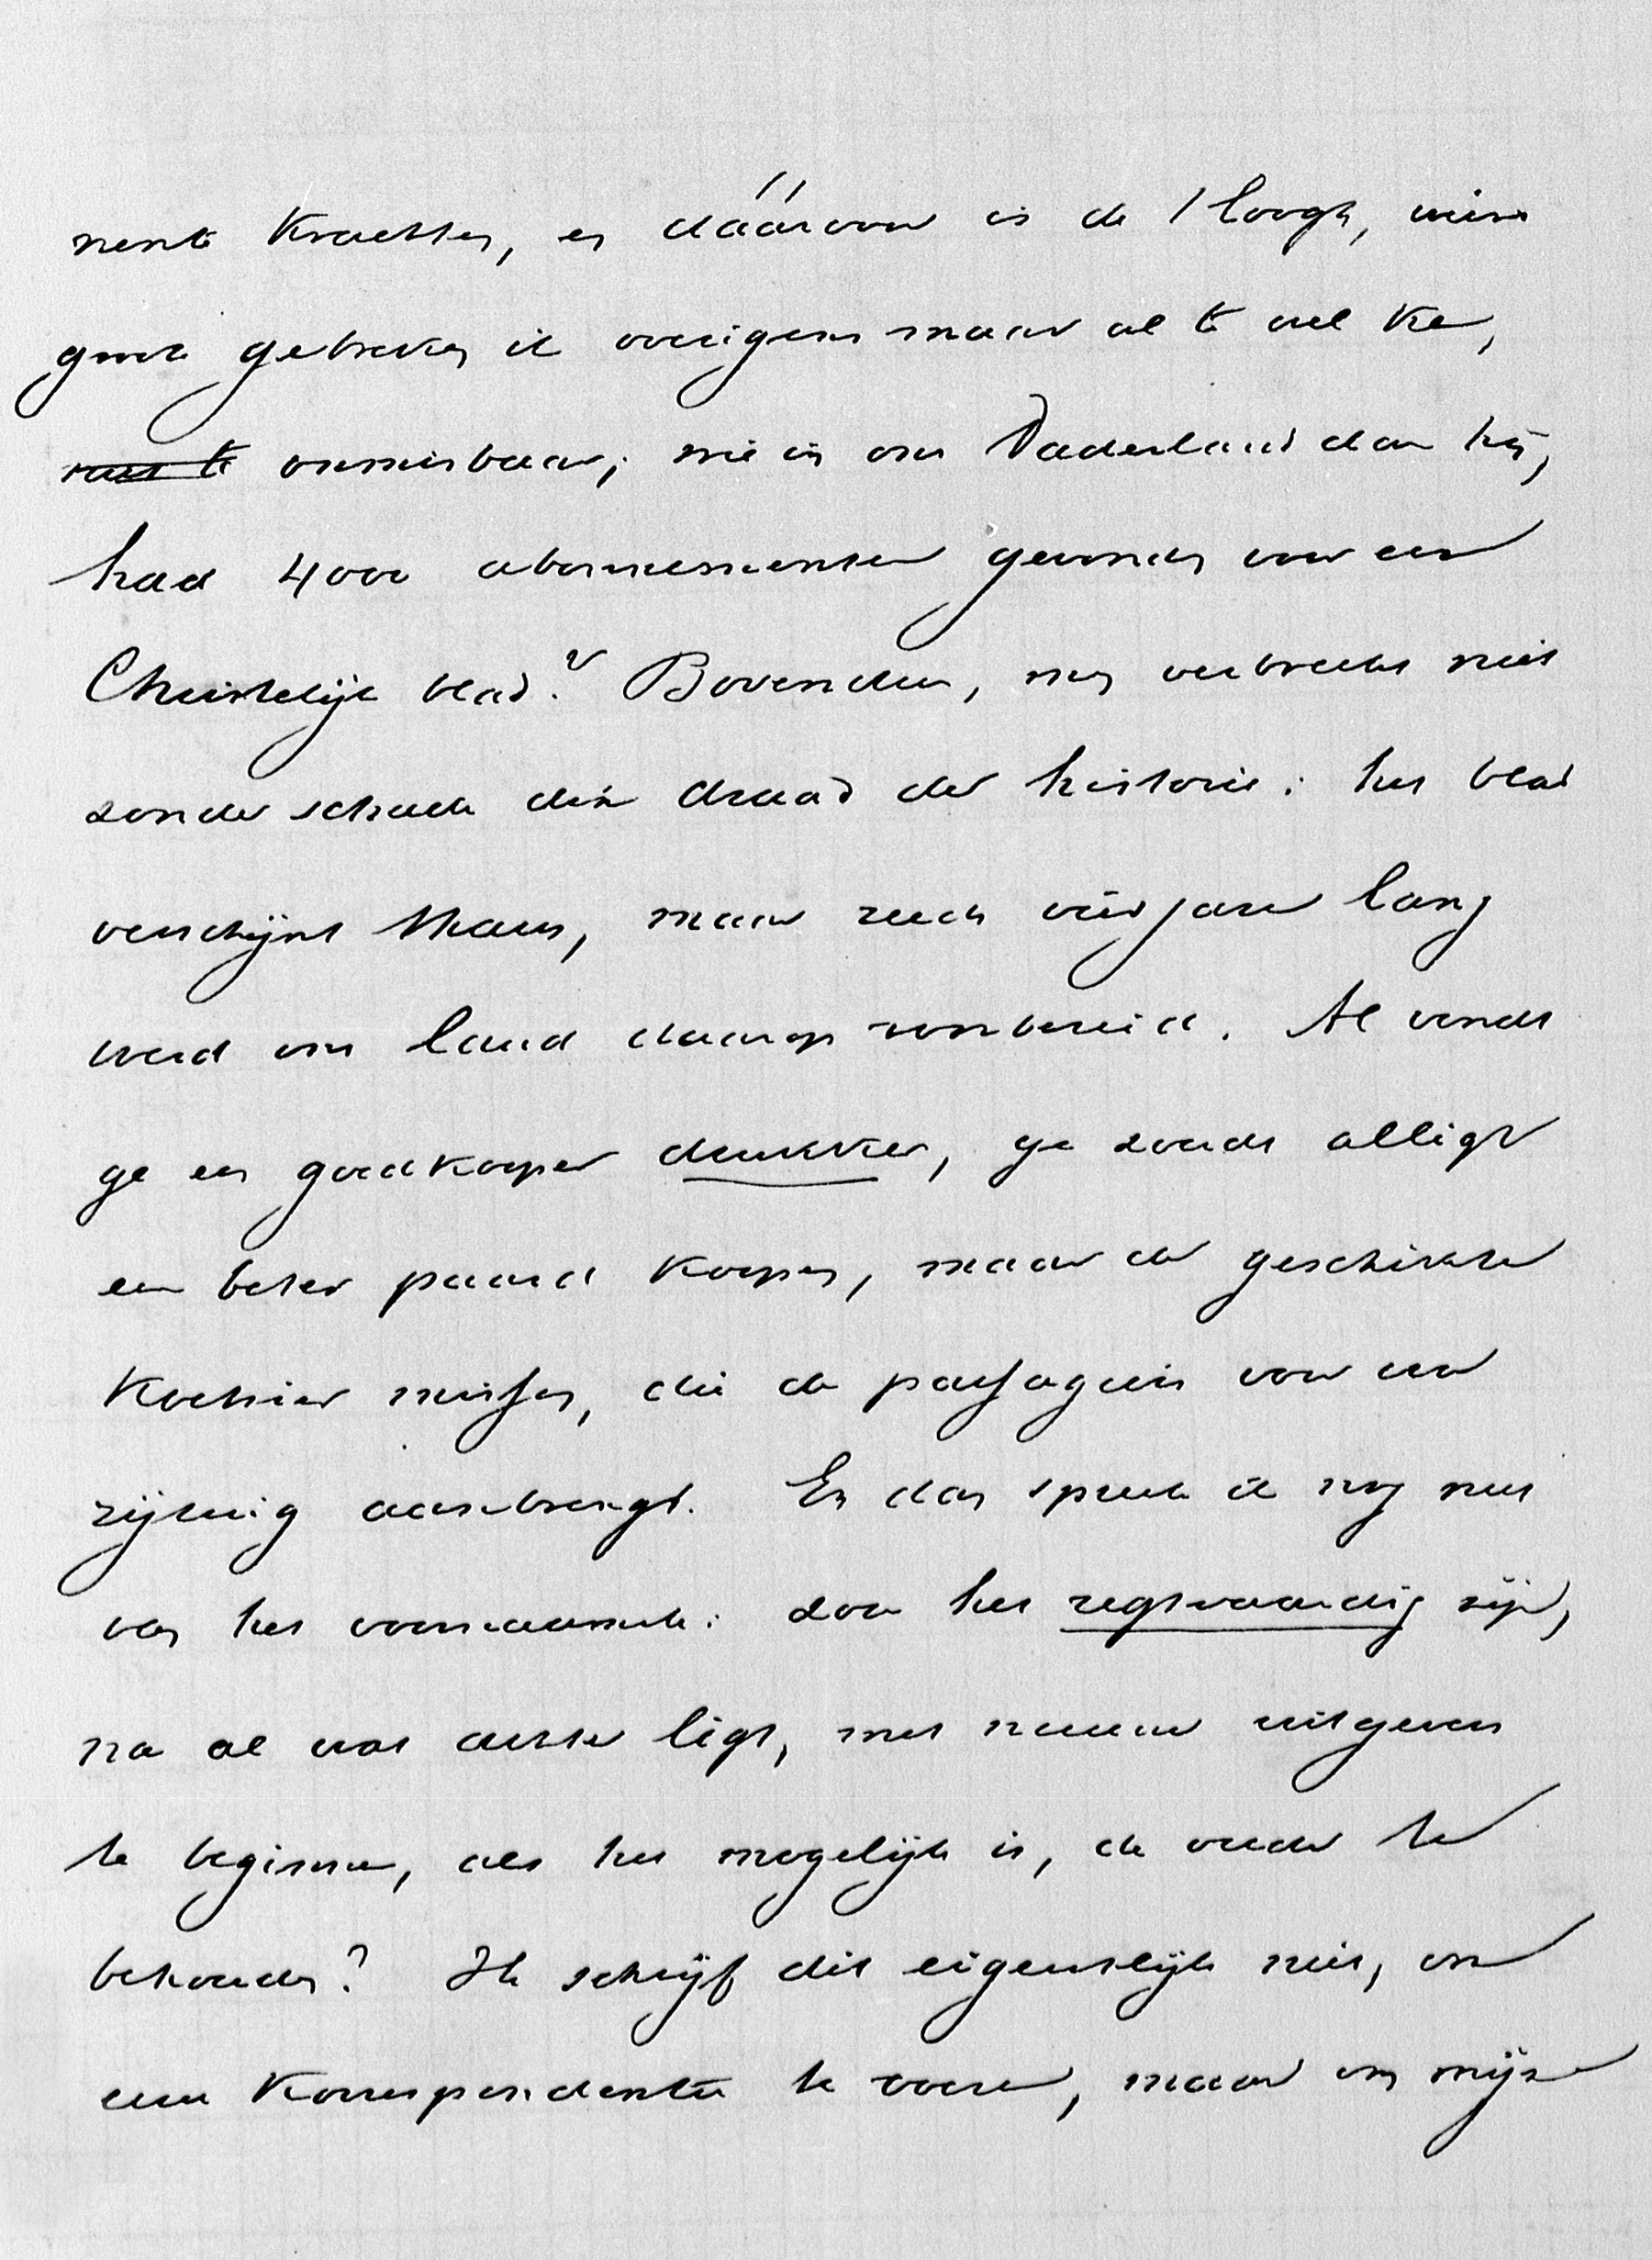 nente krachten, en dáárvoor is de Hoogh, wiens
groote gebreken ik overigens maar al te wel ken,
onmisbaar; wie in ons Vaderland dan hij,
had 4000 abonnementen gevonden voor een
Christelijk blad? Bovendien, men verbreekt niet
zonder schade den draad der historie: het blad
verschijnt thans, maar reeds vier jaren lang
werd ons land daarop voorbereid. Al vondt
ge een goedkooper drukker, ge zoudt alligt
een beter paard koopen, maar den geschikten
koetsier missen, die de passagiers voor een
rijtuig aanbrengt. En dan spreek ik nog niet
van het voornaamste: zou het regtvaardig zijn,
na al wat achter ligt, met nieuwe uitgevers
te beginnen, als het mogelijk is, de oude te
behouden? Ik schrijf dit eigenlijk niet, om
eene korrespondentie te voeren, maar om mijne